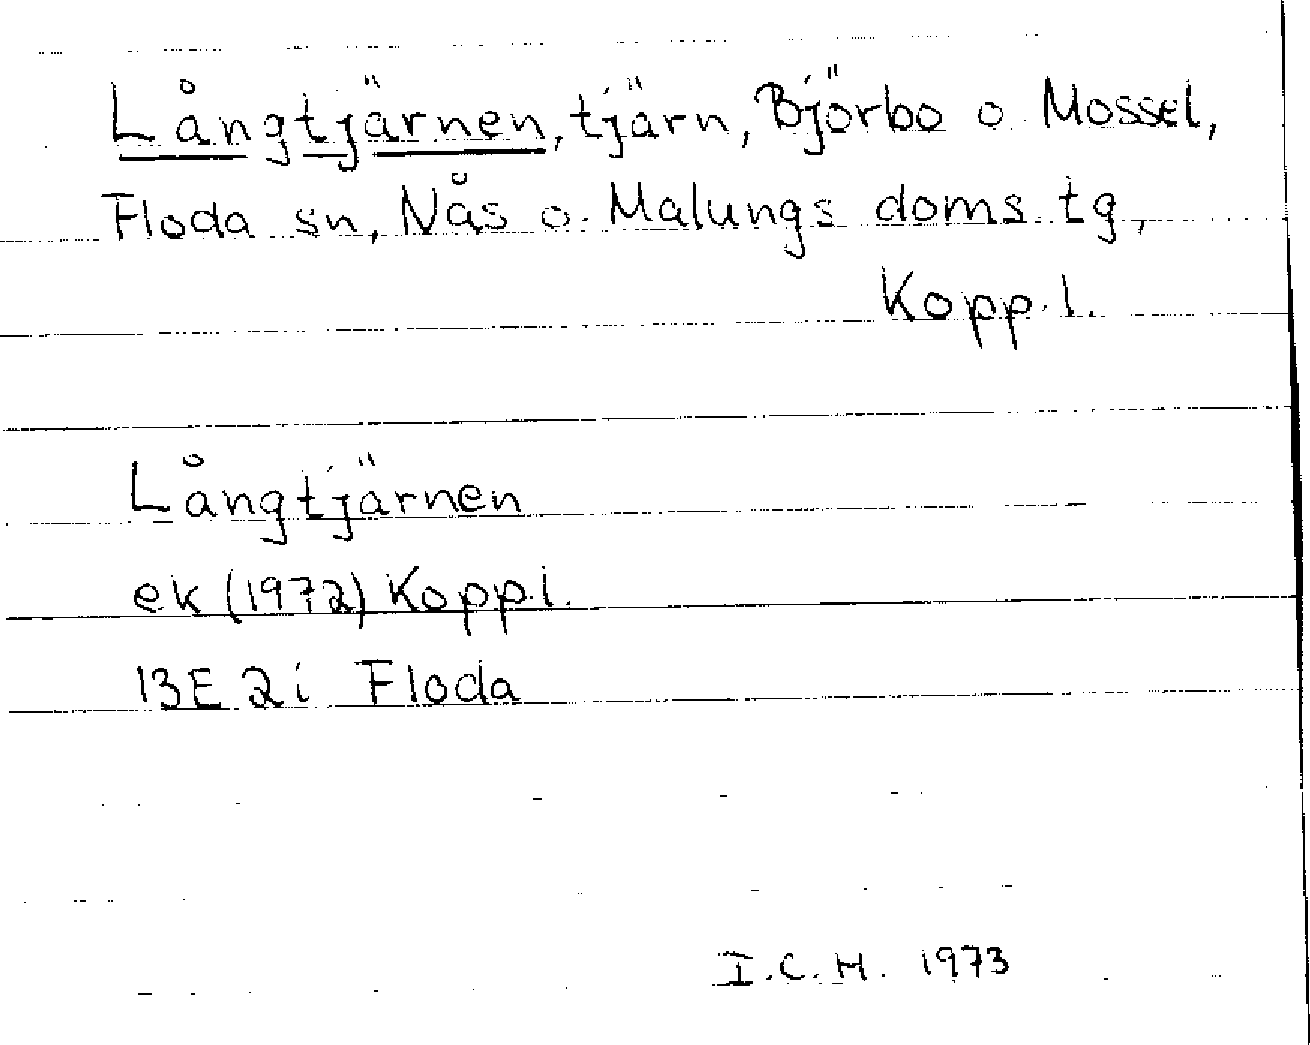 Långtjärnen, tjärn, Björbo o. Mossel,
Floda sn, Nås o. Malungs doms. tg,
Kopp. l.
Långtjärnen
ek (1972) Kopp. l.
13E 2i Floda
I.C.H. 1973